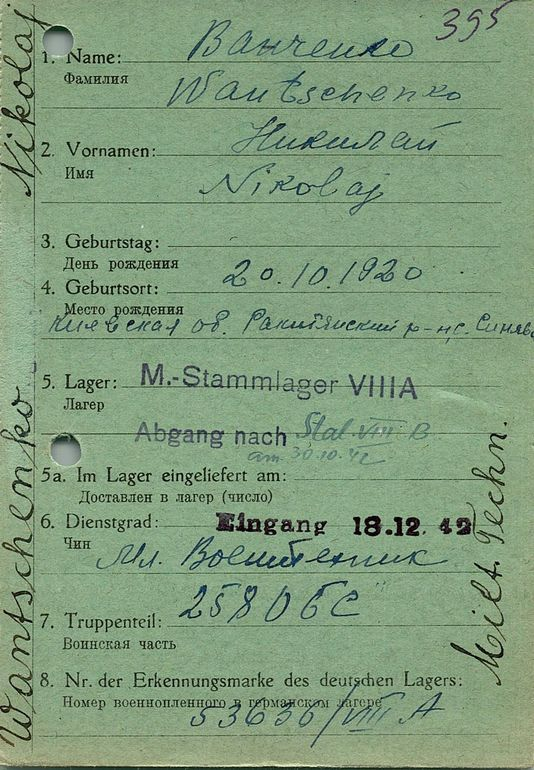 395
Ванченко
1. Name:
Фамилия
Wantschenko
Николай
2. Vornamen:
Имя
Nikolaj
3. Geburtstag:
День рождения
20.10.1920
4. Geburtsort:
Место рождения
Киевская об. Ракитянский р-н, с. Синява
5. Lager: M.-Stammlager VIIIA
Лагер
Abgang nach Stal. VIII B
am 30.10.42
5a. Im Lager eingeliefert am:
Доставлен в лагер (число)
6. Dienstgrad: Eingang 18.12.42
Чин
Мл. Воентехник
258 ОБС
7. Truppenteil:
Воинская часть
8. Nr. der Erkennungsmarke des deutschen Lagers:
Номер военнопленного в германском лагере
53636/VIII A
Wantschenko Nikolaj
Milt. Techn.